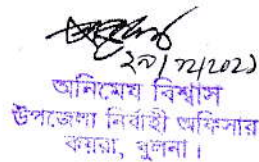 ২৯/১২/২০২১
অনিমেষ বিশ্বাস
উপজেলা নির্বাহী অফিসার
কয়রা, খুলনা।